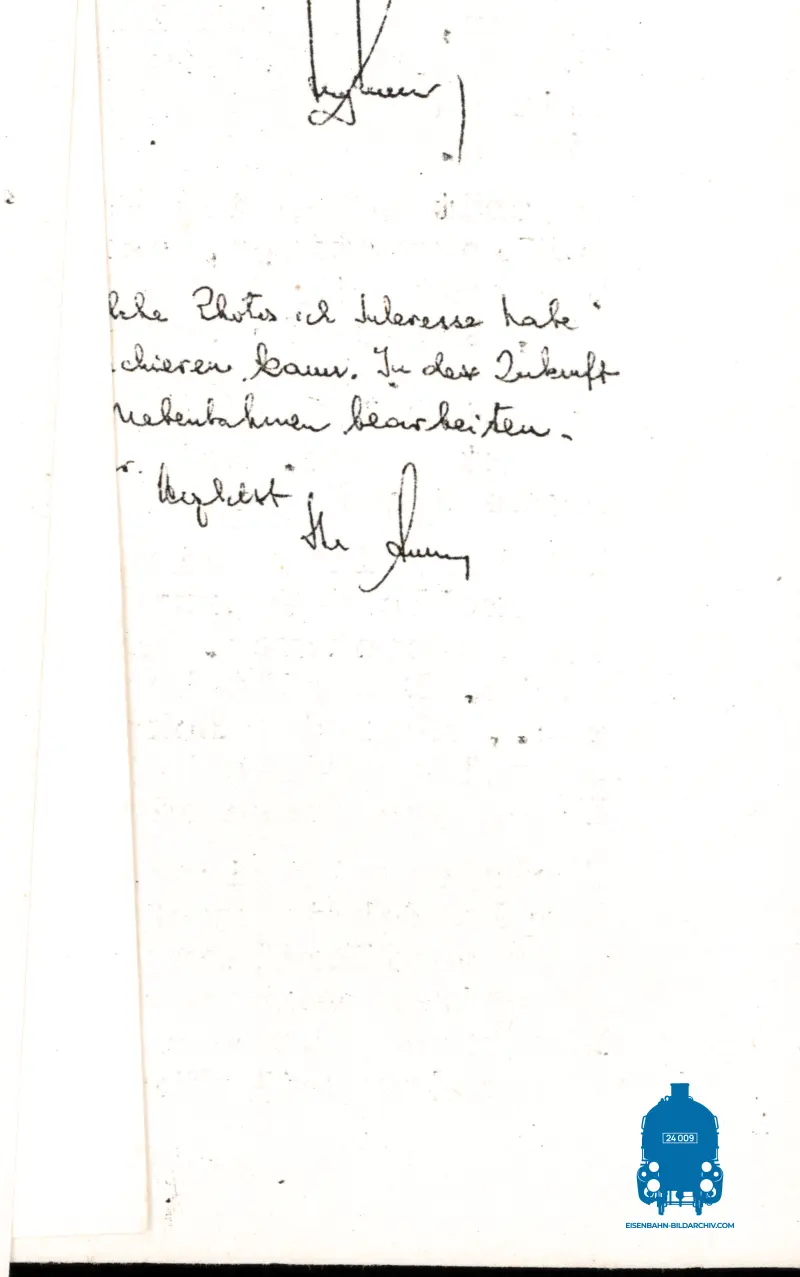 lche Photos ich Interesse habe
chieren kann. In der Zukunft
Nebenbahnen bearbeiten.
Herzlichst
Ihr
24 009
EISENBAHN-BILDARCHIV.COM